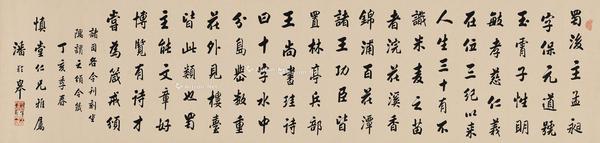 蜀後主孟昶
字保元道號
玉霄子性明
敏孝慈仁義
在位三紀以来
人生三十有不
識米麦之苗
者浣花溪香
錦浦百花潭
諸王功臣皆
置林亭兵部
王尚書珪詩
曰十字水中
分島嶼數重
花外見樓臺
皆此類也蜀
主能文章好
博覽有詩才
嘗為箴戒頒
諸司各令刊刻坐
隅謂之頒令箴
丁亥季春
慎堂仁兄雅属
潘齡皋